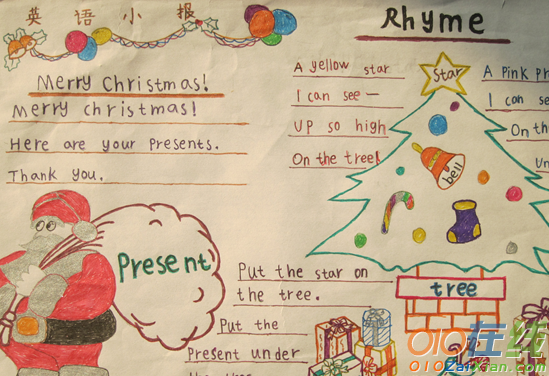 英语小报
Merry Christmas!
Merry christmas!
Here are your Presents.
Thank you.
Present
Rhyme
A yellow star
I can see —
UP so high
On the tree!
Star
bell
tree
A Pink
I can see
On the
Put the star on
the tree.
Put the
Present under
010在线
010Zaixian.com